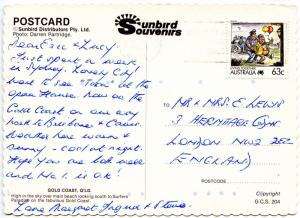 POSTCARD
Sunbird Distributors Pty. Ltd.
Photo: Darren Partridge.
Sunbird
Souvenirs
AUSTRALIA
63c
Dear Eric & Lucy.
Just spent a week
in Sydney. Lovely City
had to see "Toad" at the
Opera House now on the
Gold Coast on our way
back to Brisbane &
weather here warm &
sunny - cool at night.
Hope you are both well
and No 1 is ok!
MR & MRS E LEWIS
3 HERMITAGE COURT
LONDON NW2 2EZ
ENGLAND
POSTCODE
GOLD COAST, Q'LD.
High in the sky over main beach looking south to Surfers
Paradise on the fabulous Gold Coast
Copyright
G.C.S. 204
Love Margaret